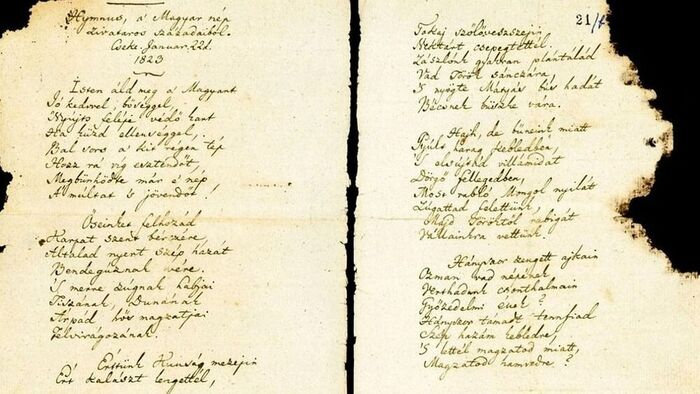 Hymnus, a' Magyar nép
zivataros századaiból.
Cseke. Januar. 22d.
1823
Isten áld meg a Magyart
Jó kedvvel, bőséggel,
Nyujts feléje védő kart
Ha küzd ellenséggel,
Bal sors a kit régen tép
Hozz rá víg esztendőt,
Megbűnhödte már e' nép
A' multat 's jövendőt!
Őseinket felhozád
Kárpát szent bérczére
Általad nyert szép hazát
Bendegúznak vére.
'S merre zúgnak habjai
Tiszának, Dunának
Árpád hős magzatjai
Felvirágozának.
Értünk Kunság mezejin
Ért kalászt lengettél,
21/
Tokaj szőlővesszejin
Nektárt csepegtettél.
Zászlónk gyakran plántálád
Vad Török sánczára,
'S nyögte Mátyás bús hadát
Bécsnek büszke vára.
Hajh, de bűneink miatt
Gyúlt harag kebledben,
'S elsújtád villámidat
Dörgő fellegedben,
Most rabló Mongol nyilát
Zúgattad felettünk,
Majd Töröktől rabigát
Vállainkra vettünk.
Hányszor zengett ajkain
Ozman vad népének
Vert hadunk csonthalmain
Győzedelmi ének?
Hányszor támadt tenfiad
Szép hazám kebledre,
'S lettél magzatod miatt,
Magzatod hamvvedre?